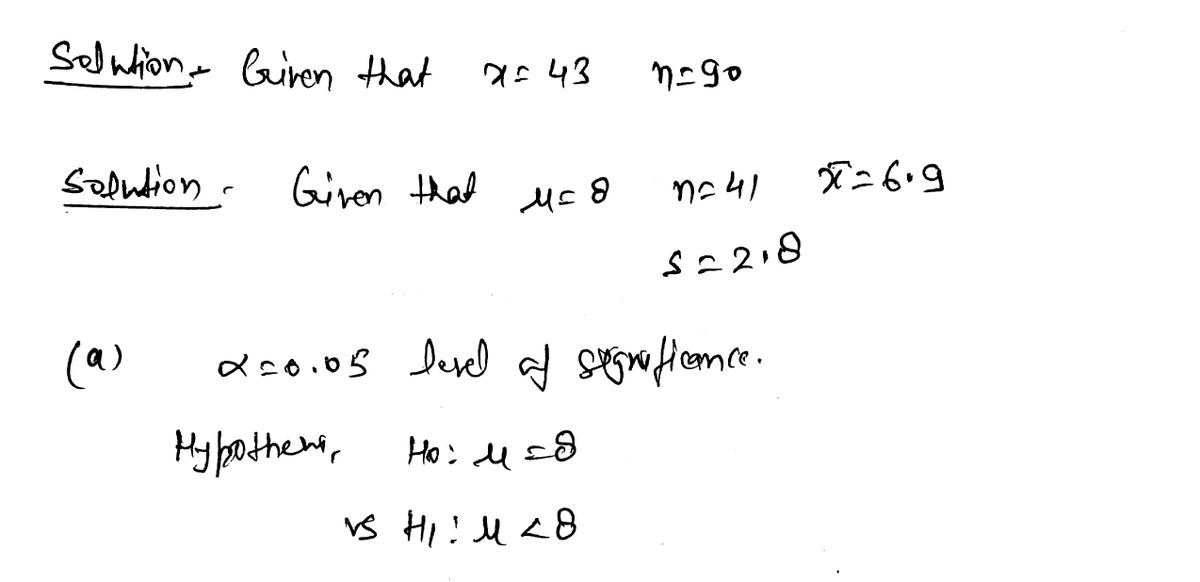 Solution - Given that x = 43 n = 90
Solution - Given that μ = 8 n = 41 x̄ = 6.9
s = 2.8
(a) α = 0.05 level of significance.
Hypothesis, H0: μ = 8
vs H1: μ < 8